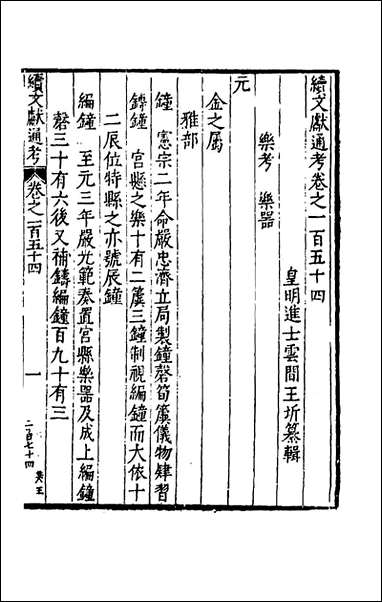 續文獻通考卷之一百五十四
皇明進士雲間王圻纂輯
樂考 樂器
元
金之屬
雅部
鐘 憲宗二年命嚴忠濟立局製鐘磬筍簴儀物肄習
鎛鐘 宮懸之樂十有二簴三鐘制視編鐘而大依十
二辰位特縣之亦號辰鐘
編鐘 至元三年嚴光範奏置宮縣樂器及成上編鐘
磬三十有六後又補鑄編鐘百九十有三
續文獻通考
卷之一百五十四
一
二百七十四